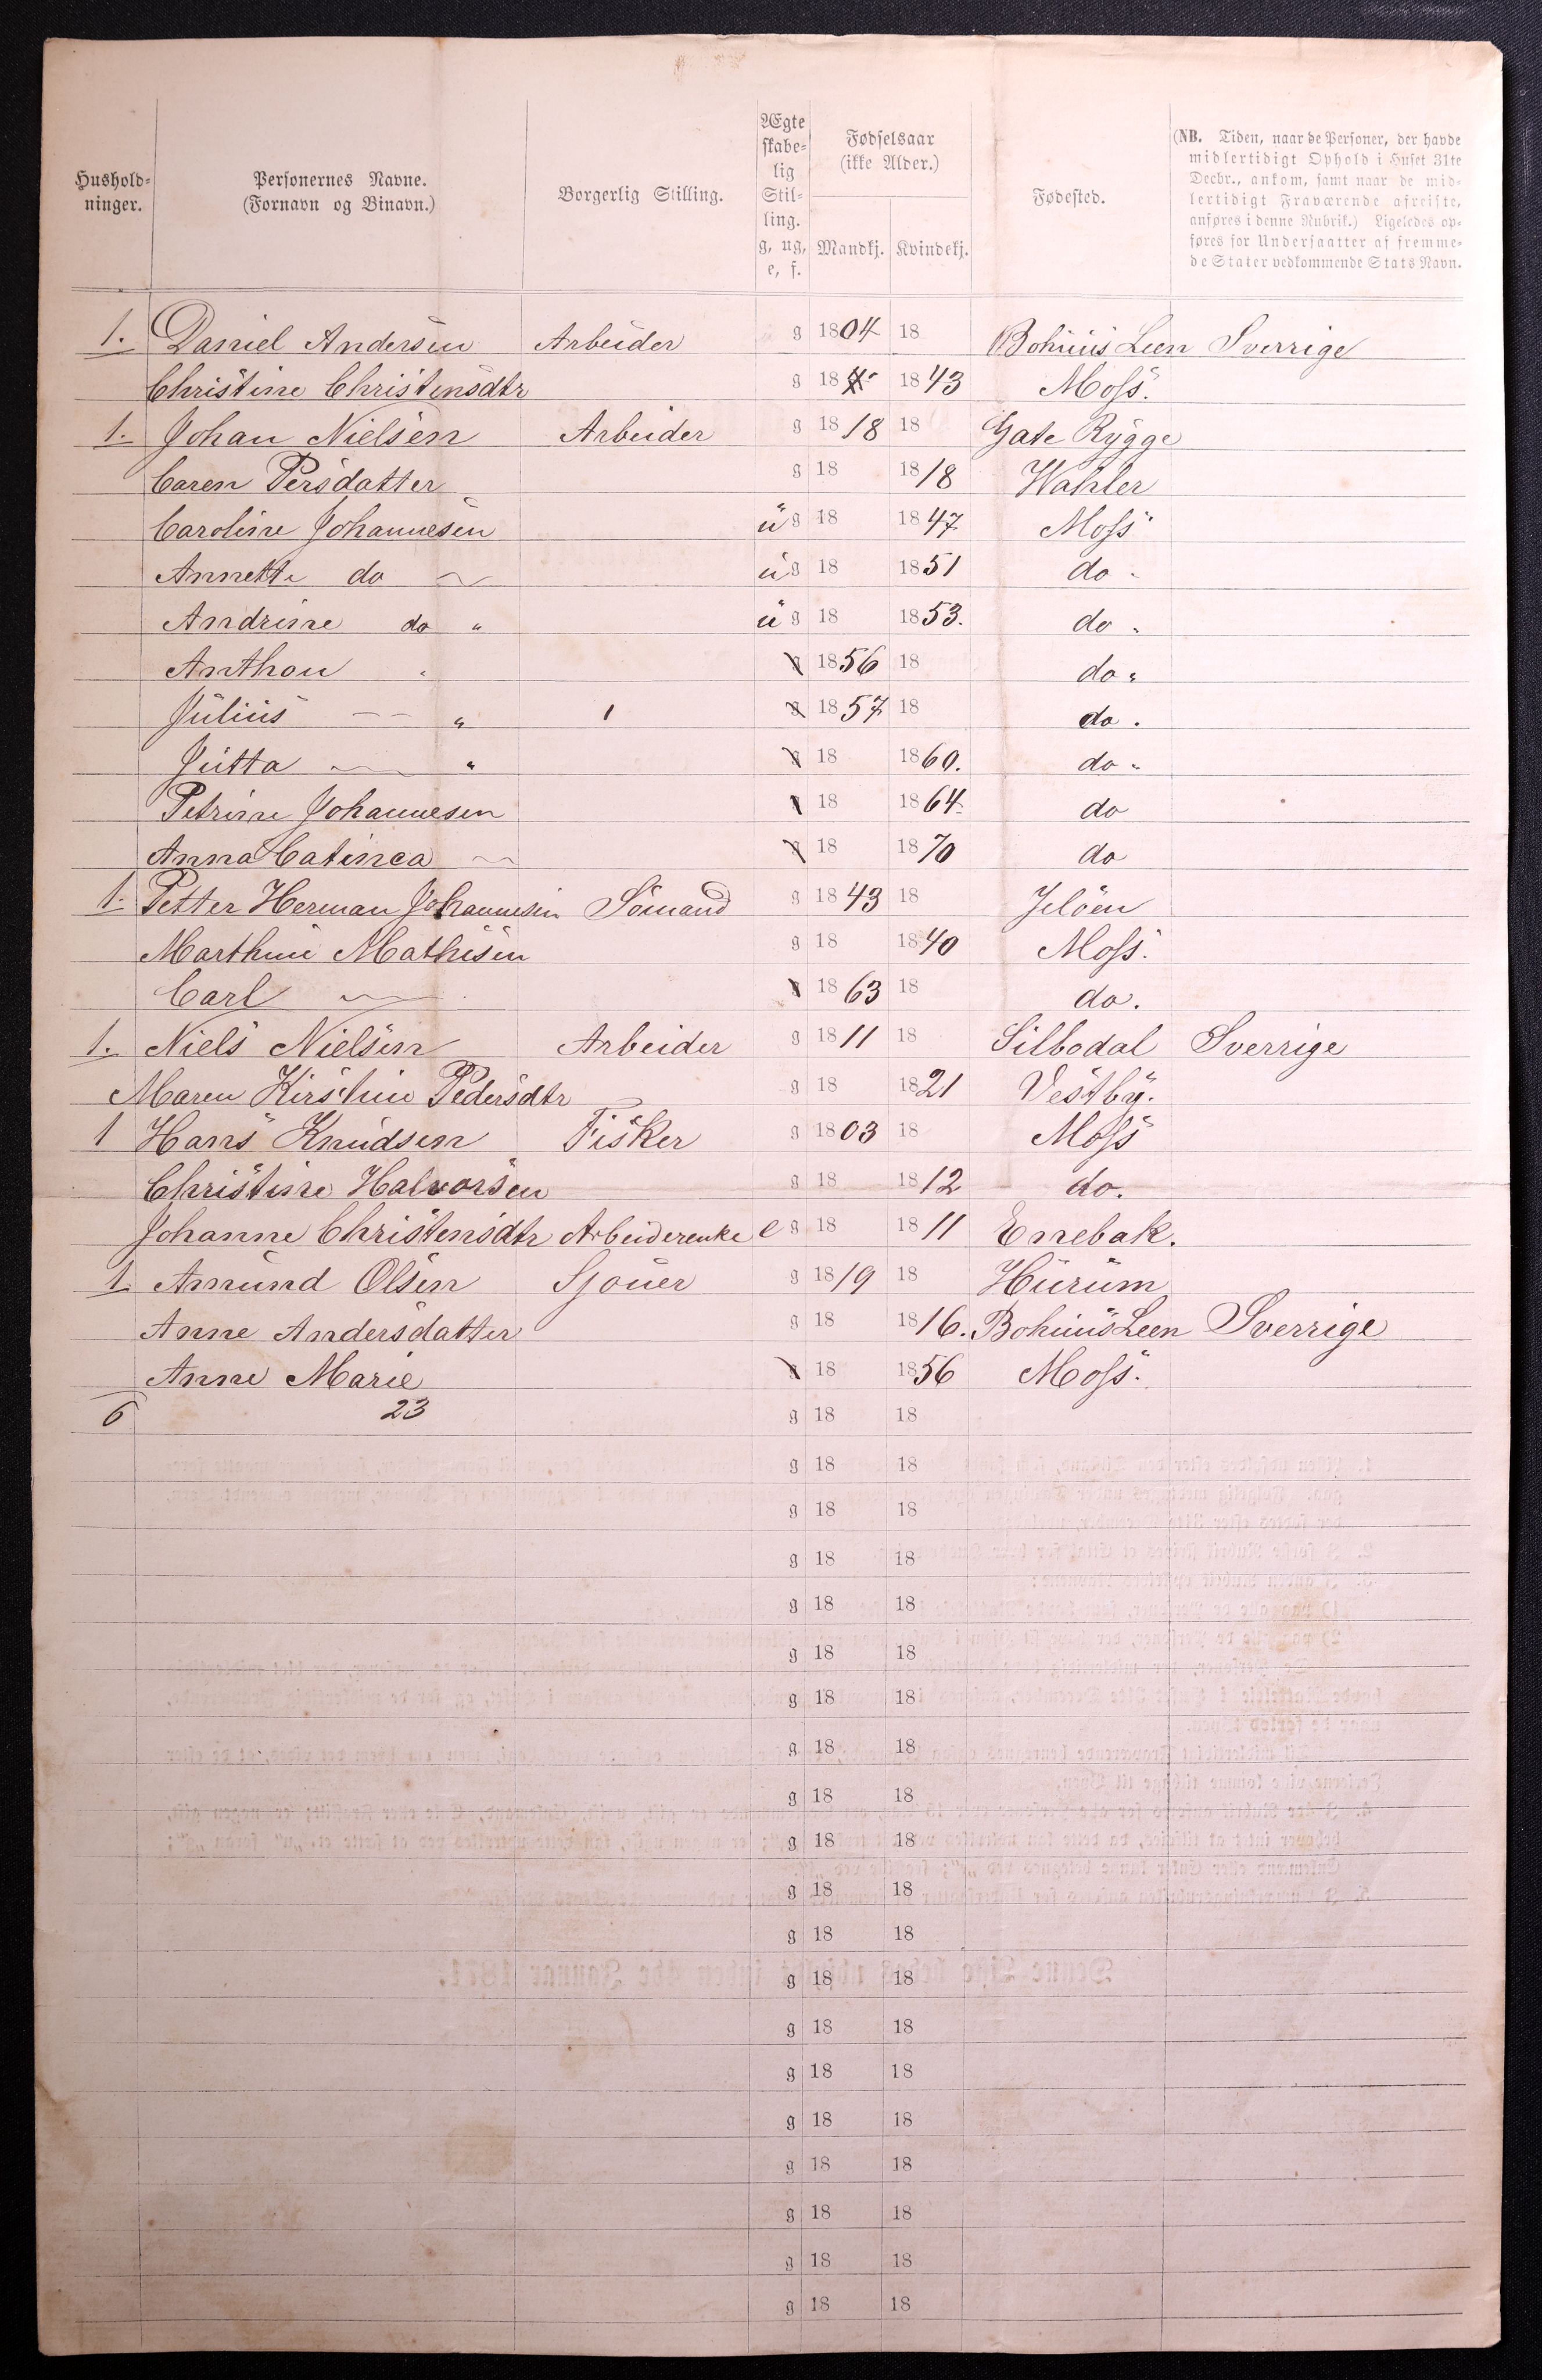 Hushold-
ninger.
Personernes Navne.
(Fornavn og Binavn.)
Borgerlig Stilling.
Ægte
skabe-
lig
Stil-
ling.
g, ug,
e, f.
Fødselsaar
(ikke Alder.)
Mandkj. Kvindekj.
Fødested.
(NB. Tiden, naar de Personer, der havde
midlertidigt Ophold i Huset 31te
Decbr., ankom, samt naar de mid-
lertidigt Fraværende afreiste,
anføres i denne Rubrik.) Ligeledes op-
føres for Undersaatter af fremme-
de Stater vedkommende Stats Navn.
1. Daniel Andersen Arbeider g 1804 18 Bohuus Leen Sverrige
Christine Christensdtr g 18 1843 Moss.
1. Johan Nielsen Arbeider g 1818 18 Gate Rygge
Caren Persdatter g 18 1818 Wahler
Caroline Johannesen ug 18 1847 Moss
Annette do ug 18 1851 do.
Andrine do " ug 18 1853. do.
Anthon " g 1856 18 do.
Julius — " g 1857 18 do.
Jutta — " g 18 1860. do.
Petrine Johannesen g 18 1864 do
Anna Catinca — g 18 1870 do
1. Petter Herman Johannesen Sömand g 1843 18 Jelöen
Marthine Mathisen g 18 1840 Moss.
Carl — g 1863 18 do.
1. Niels Nielsen Arbeider g 1811 18 Silbodal Sverrige
Maren Kirstine Pedersdtr g 18 1821 Vestby.
1 Hans Knudsen Fisker g 1803 18 Moss
Christine Halvorsen g 18 1812 do.
Johanne Christensdtr Arbeiderenke e g 18 1811 Enebak.
1. Amund Olsen Sjouer g 1819 18 Hurum
Anne Andersdatter g 18 1816. Bohuus Leen Sverrige
Anne Marie g 18 1856 Moss.
6 23 g 18 18
g 18 18
g 18 18
g 18 18
g 18 18
g 18 18
g 18 18
g 18 18
g 18 18
g 18 18
g 18 18
g 18 18
g 18 18
g 18 18
g 18 18
g 18 18
g 18 18
g 18 18
g 18 18
g 18 18